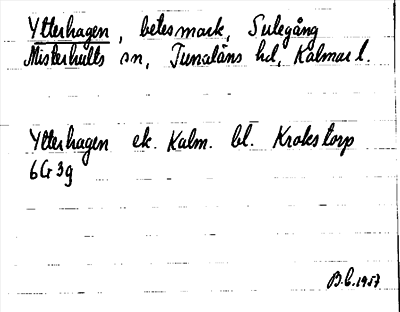 Ytterhagen, betesmark, Sulegång
Misterhults sn, Tunaläns hd, Kalmar l.
Ytterhagen ek. Kalm. bl. Krokstorp
6G3g
B.C. 1957